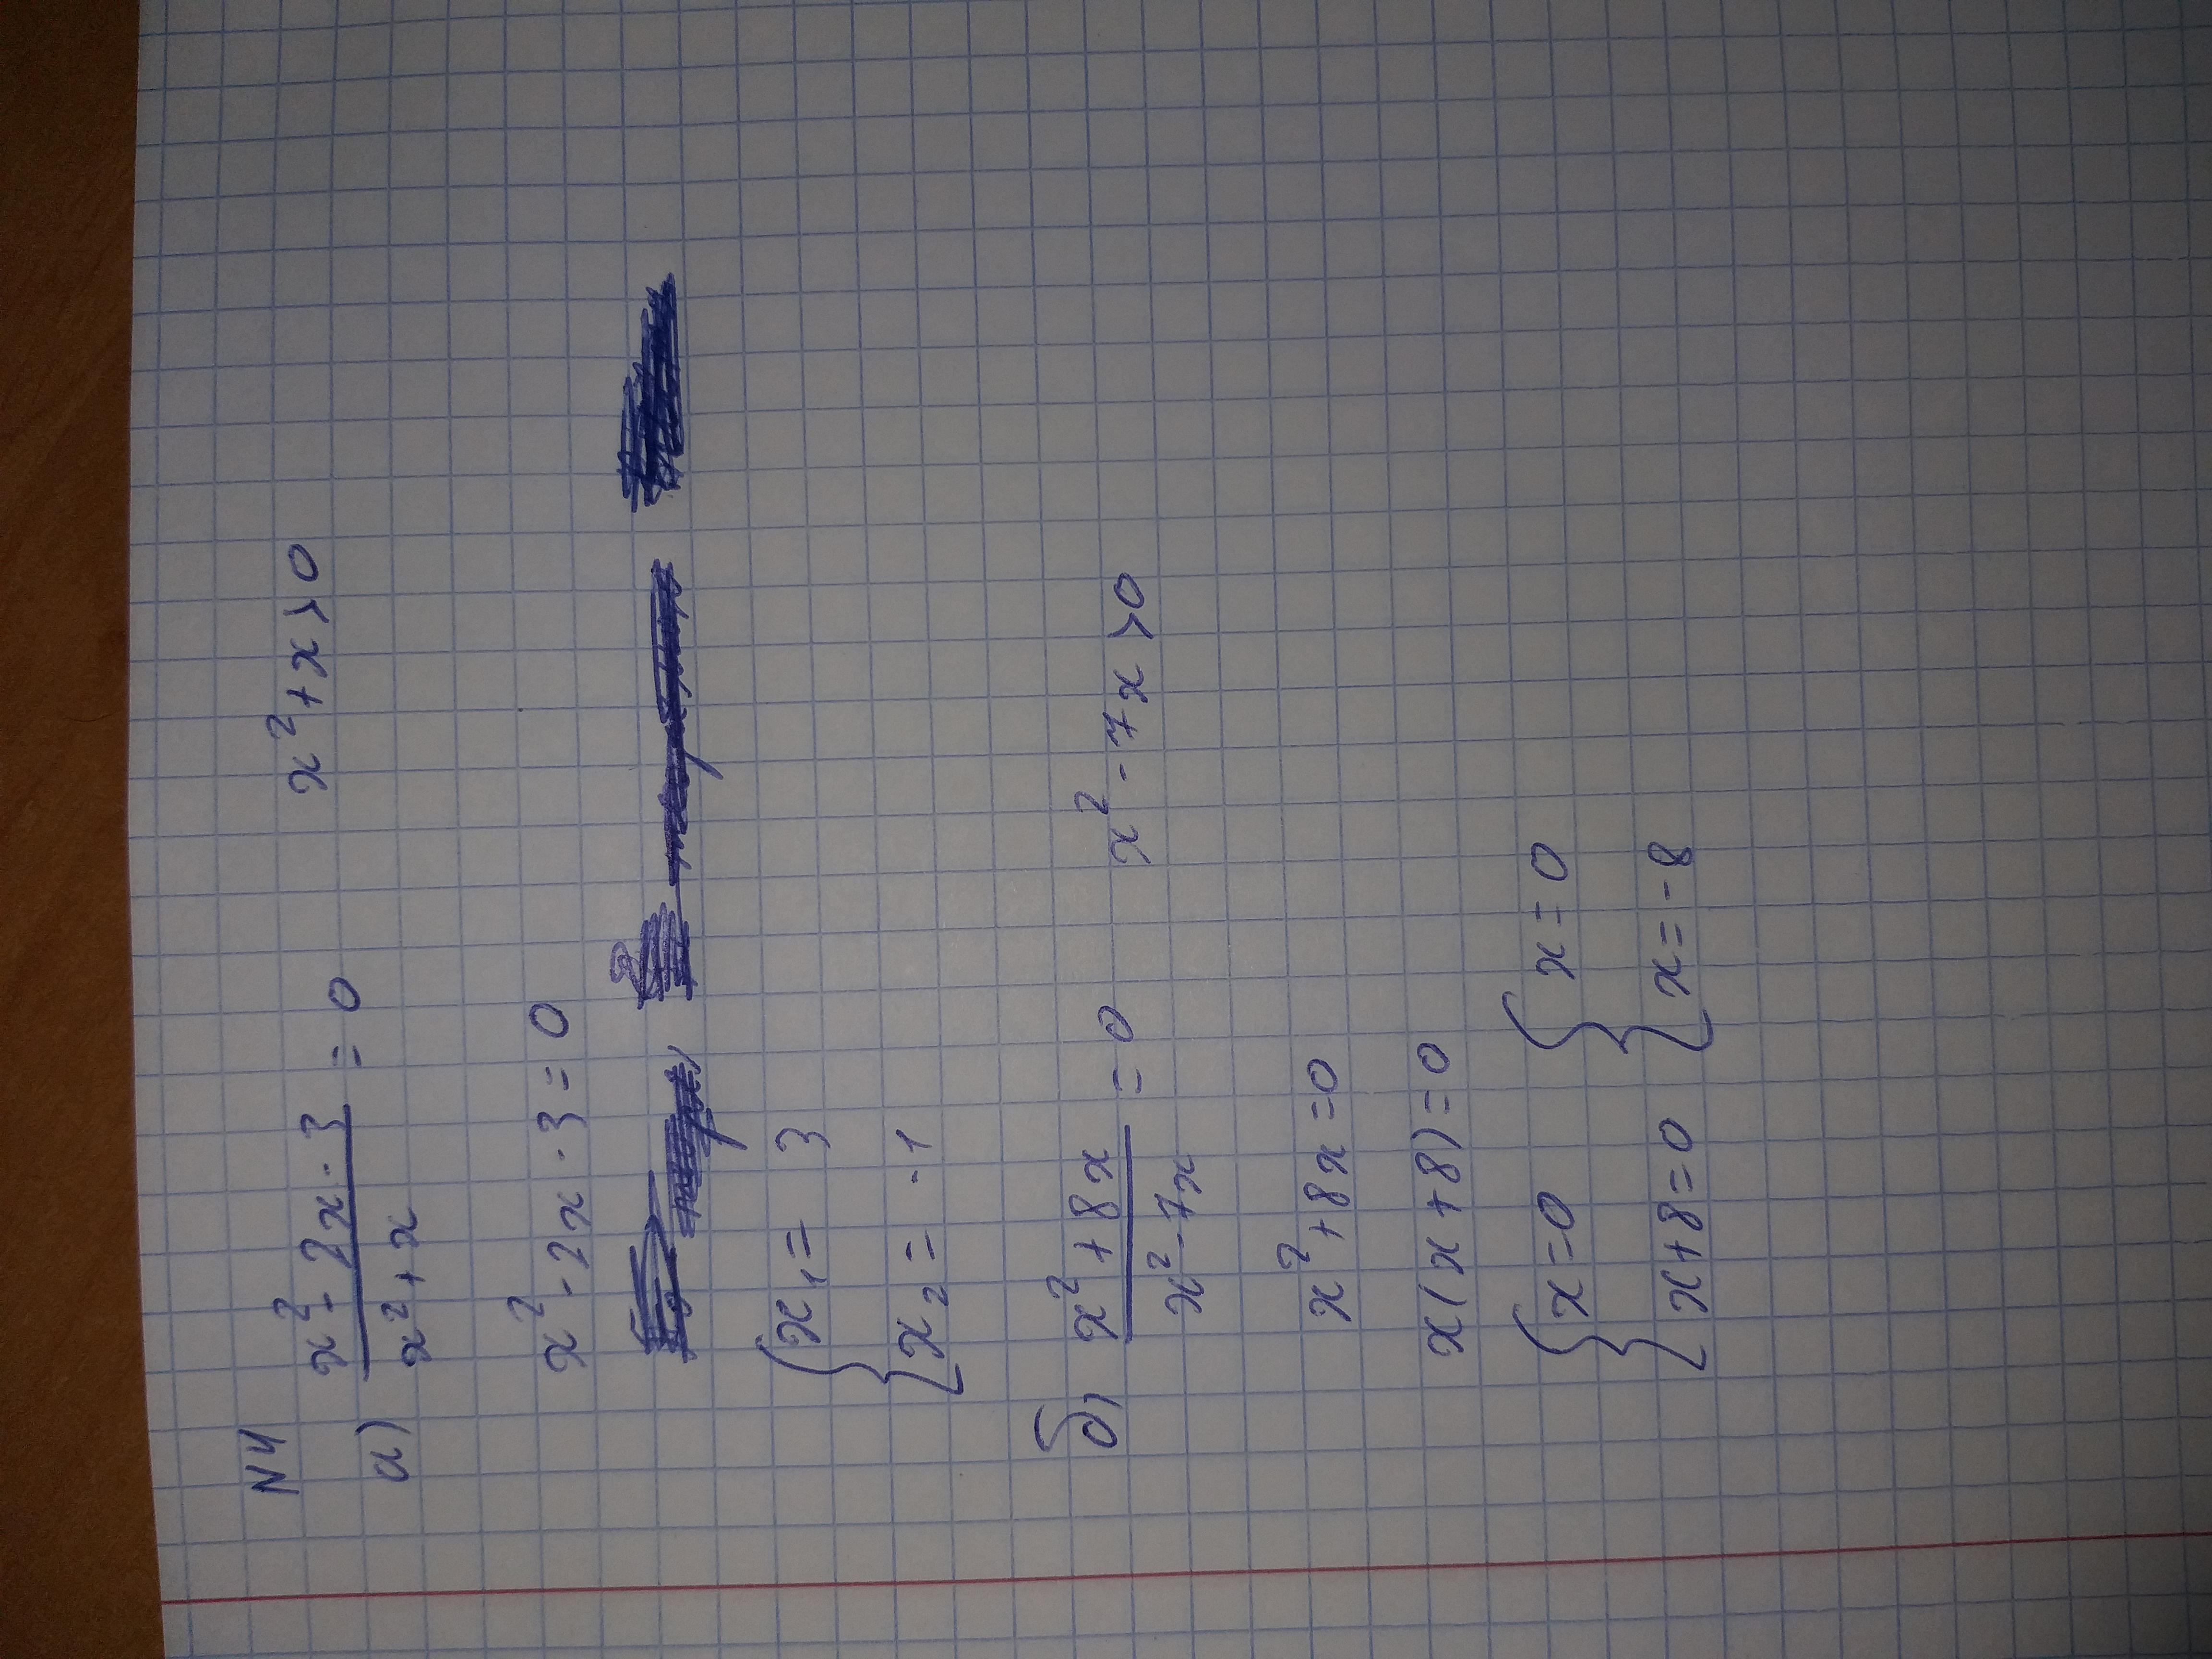 N4
а) x² - 2x - 3 / x² + x = 0    x² + x > 0
x² - 2x - 3 = 0
{ x₁ = 3
{ x₂ = -1
б) x² + 8x / x² - 7x = 0    x² - 7x > 0
x² + 8x = 0
x(x + 8) = 0
{ x = 0    { x = 0
{ x + 8 = 0    { x = -8